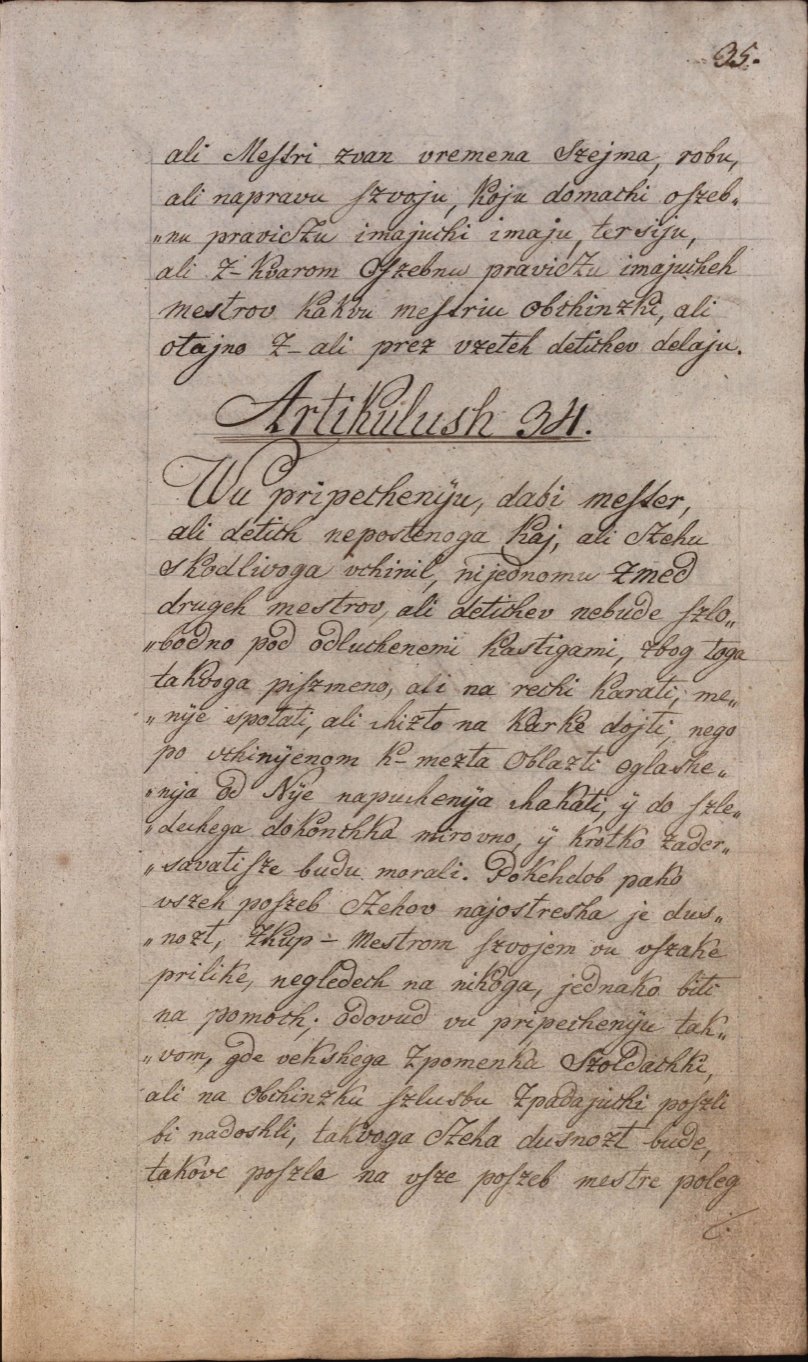 35.
ali Meſtri zvan vremena Szejma, robu,
ali napravu ſzvoju, koju domachi oſzeb„
„nu praviczu imajuchi imaju, tersiju,
ali z-kvarom Oſzebnu praviczu imajucheh
mestrov kakvu meſtriu Obchinzki, ali
otajno z-ali prez vzeteh detichev delaju.
Artikulush 34.
Wu pripechenyu, dabi meſter,
ali detich nepostenoga kaj, ali Czehu
skodlivoga vchinil, nijednomu zmed
drugeh mestrov, ali detichev nebude ſzlo„
„bodno pod odluchenemi kastigami, zbog toga
takvoga piſzmeno, ali na rechi karati, me„
„nije spotati, ali chizto na karke dojti, nego
po vchinyenom k-mezta Oblazti oglashe„
„nija od Nye napuchenya chakati, ÿ do ſzle„
„duhega dokonchka mirovno, ÿ krotko zader„
„savatiſze budu morali. Pokehdob pako
vszeh poſzeb Czehov najostresha je dus„
„nozt, Zkup-Mestrom ſzvojem vu vſzake
prilike, negledech na nikoga, jednako biti
na pomoch; odovud vu pripechenyu tak„
„vom, gde vekshega zpomenka Szoldachki,
ali na Obchinzku ſzlusbu zpadajuchi poſzli
bi nadoshli, takvoga Czeha dusnozt bude,
takove poſzle na vſze poſzeb mestre poleg